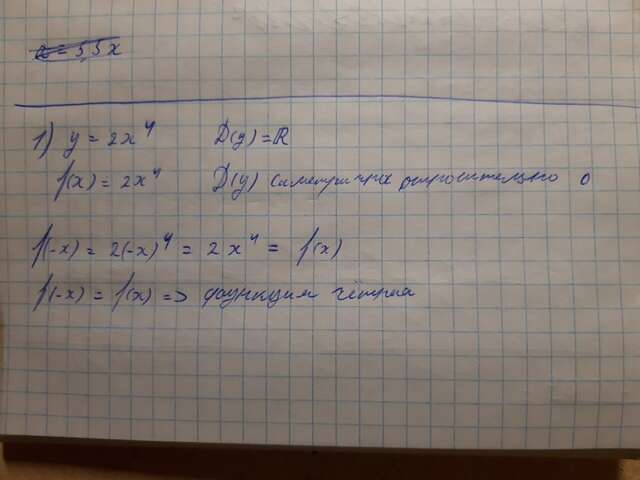 a = 5,5x
1) y = 2x⁴ D(y) = R
f(x) = 2x⁴ D(y) симетрична относительно 0
f(-x) = 2(-x)⁴ = 2x⁴ = f(x)
f(-x) = f(x) => функция чётная